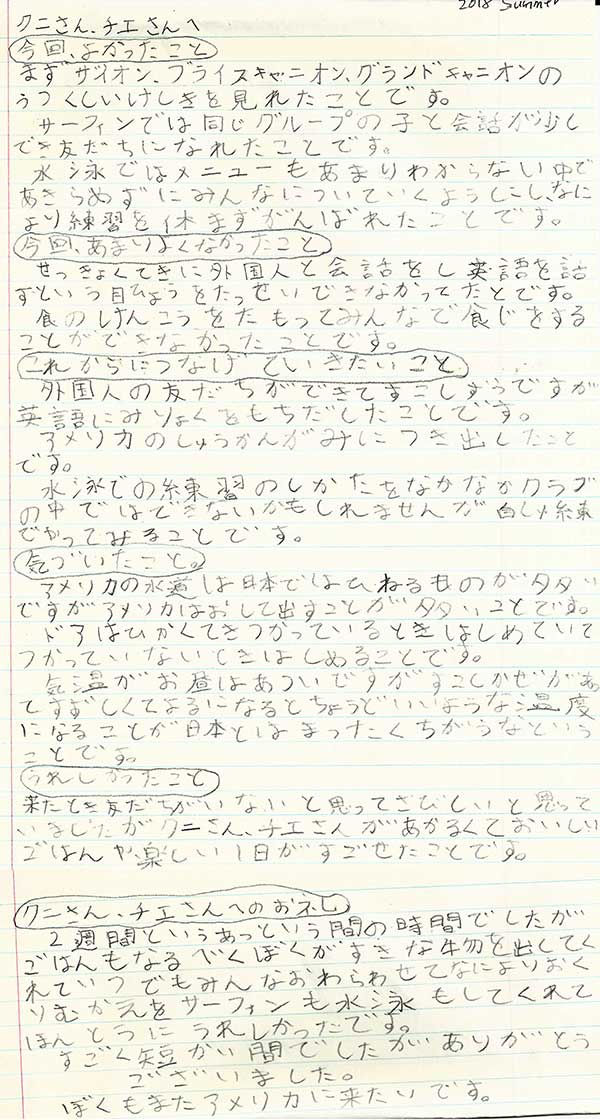 2018 Summer
クニさん、チエさんへ
今回、よかったこと
まずザイオン、ブライスキャニオン、グランドキャニオンの
うつくしいけしきを見れたことです。
サーフィンでは同じグループの子と会話が少し
でき友だちになれたことです。
水泳ではメニューもあまりわからない中で
あきらめずにみんなについていくようにし、なに
より練習を休まずがんばれたことです。
今回、あまりよくなかったこと
せっきょくてきに外国人と会話をし英語を話
すという目ひょうをたっせいできなかってたとです。
食のけんこうをたもってみんなで食じをする
ことができなかったことです。
これからにつなげていきたいこと
外国人の友だちができてすこしずつですが
英語にみりょくともちだしたことです。
アメリカのしゅうかんがみにつき出したこと
です。
水泳での練習のしかたをなかなかクラブ
の中ではできないかもしれませんが自しゅ練
でやってみることです。
気づいたこと。
アメリカの水道は日本ではひねるものが多い
ですがアメリカはおして出すことが多いことです。
ドアはひかくてきつかっているときはしめていて
つかっていないときはしめることです。
気温がお昼はあついですがすこしかぜがあ
てすずしくてよるになるとちょうどいいような温度
になることが日本とはまったくちがうなという
ことです。
うれしかったこと
来たとき友だちがいないと思ってさびしいと思って
いましたがクニさん、チエさんがあかるくておいしい
ごはんや楽しい1日がすごせたことです。
クニさん、チエさんへのお礼
2週間というあっという間の時間でしたが
ごはんもなるべくぼくがすきな物を出してく
れていつでもみんなおわらわせてなによりおく
りむかえをサーフィンも水泳もしてくれて
ほんとうにうれしかったです。
すごく短かい間でしたがありがとう
ございました。
ぼくもまたアメリカに来たいです。